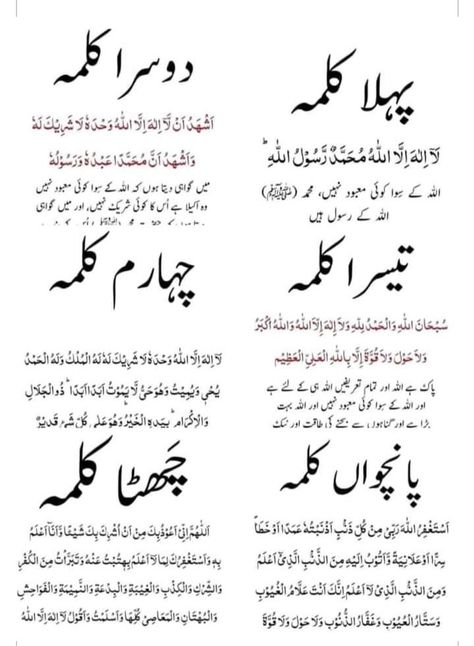 پہلا کلمہ
لَآ اِلٰهَ اِلَّا اللهُ مُحَمَّدٌ رَّسُوْلُ اللهِؕ
اللہ کے سِوا کوئی معبود نہیں، محمد (ﷺ)
اللہ کے رسول ہیں
دوسرا کلمہ
اَشْهَدُ اَنْ لَّآ اِلٰهَ اِلَّا اللهُ وَحْدَهٗ لَا شَرِيْكَ لَهٗ
وَاَشْهَدُ اَنَّ مُحَمَّدًا عَبْدُهٗ وَرَسُوْلُهٗ
میں گواہی دیتا ہوں کہ اللہ کے سِوا کوئی معبود نہیں
وہ اکیلا ہے اُس کا کوئی شریک نہیں، اور میں گواہی
تیسرا کلمہ
سُبْحَانَ اللهِ وَالْحَمْدُ لِلّٰهِ وَلَآ اِلٰهَ اِلَّا اللهُ وَاللهُ اَكْبَرُ
وَلَا حَوْلَ وَلَا قُوَّةَ اِلَّا بِاللهِ الْعَلِيِّ الْعَظِيْمِ
پاک ہے اللہ اور تمام تعریفیں اللہ ہی کے لئے ہے
اور اللہ کے سِوا کوئی معبود نہیں اور اللہ بہت
بڑا ہے اور گناہوں سے بچنے کی طاقت اور نیک
چہارم کلمہ
لَآ اِلٰهَ اِلَّا اللهُ وَحْدَهٗ لَا شَرِيْكَ لَهٗ لَهُ الْمُلْكُ وَلَهُ الْحَمْدُ
يُحْيٖ وَيُمِيْتُ وَهُوَ حَيٌّ لَّا يَمُوْتُ اَبَدًا اَبَدًاؕ ذُو الْجَلَالِ
وَالْاِكْرَامِؕ بِيَدِهِ الْخَيْرُ وَهُوَ عَلٰى كُلِّ شَيْءٍ قَدِيْرٌ
پانچواں کلمہ
اَسْتَغْفِرُ اللهَ رَبِّيْ مِنْ كُلِّ ذَنْۢبٍ اَذْنَبْتُهٗ عَمَدًا اَوْ خَطَأً
سِرًّا اَوْ عَلَانِيَةً وَّاَتُوْبُ اِلَيْهِ مِنَ الذَّنْۢبِ الَّذِيْٓ اَعْلَمُ
وَمِنَ الذَّنْۢبِ الَّذِيْ لَآ اَعْلَمُ اِنَّكَ اَنْتَ عَلَّامُ الْغُيُوْبِ
وَسَتَّارُ الْعُيُوْبِ وَغَفَّارُ الذُّنُوْبِ وَلَا حَوْلَ وَلَا قُوَّةَ
چَھٹا کلمہ
اَللّٰهُمَّ اِنِّيْٓ اَعُوْذُبِكَ مِنْ اَنْ اُشْرِكَ بِكَ شَيْئًا وَّاَنَآ اَعْلَمُ
بِهٖ وَاَسْتَغْفِرُكَ لِمَا لَآ اَعْلَمُ بِهٖ تُبْتُ عَنْهُ وَتَبَرَّأْتُ مِنَ الْكُفْرِ
وَالشِّرْكِ وَالْكِذْبِ وَالْغِيْبَةِ وَالْبِدْعَةِ وَالنَّمِيْمَةِ وَالْفَوَاحِشِ
وَالْبُهْتَانِ وَالْمَعَاصِيْ كُلِّهَا وَاَسْلَمْتُ وَاَقُوْلُ لَآ اِلٰهَ اِلَّا اللهُ